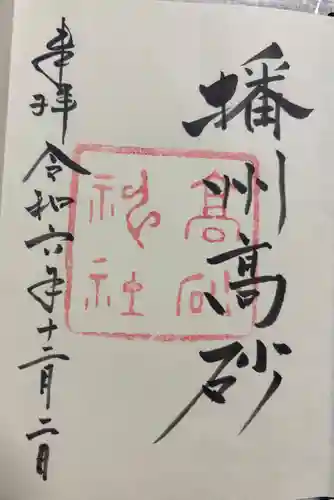 播州高砂
髙砂
神社
奉拝 令和六年十二月二日